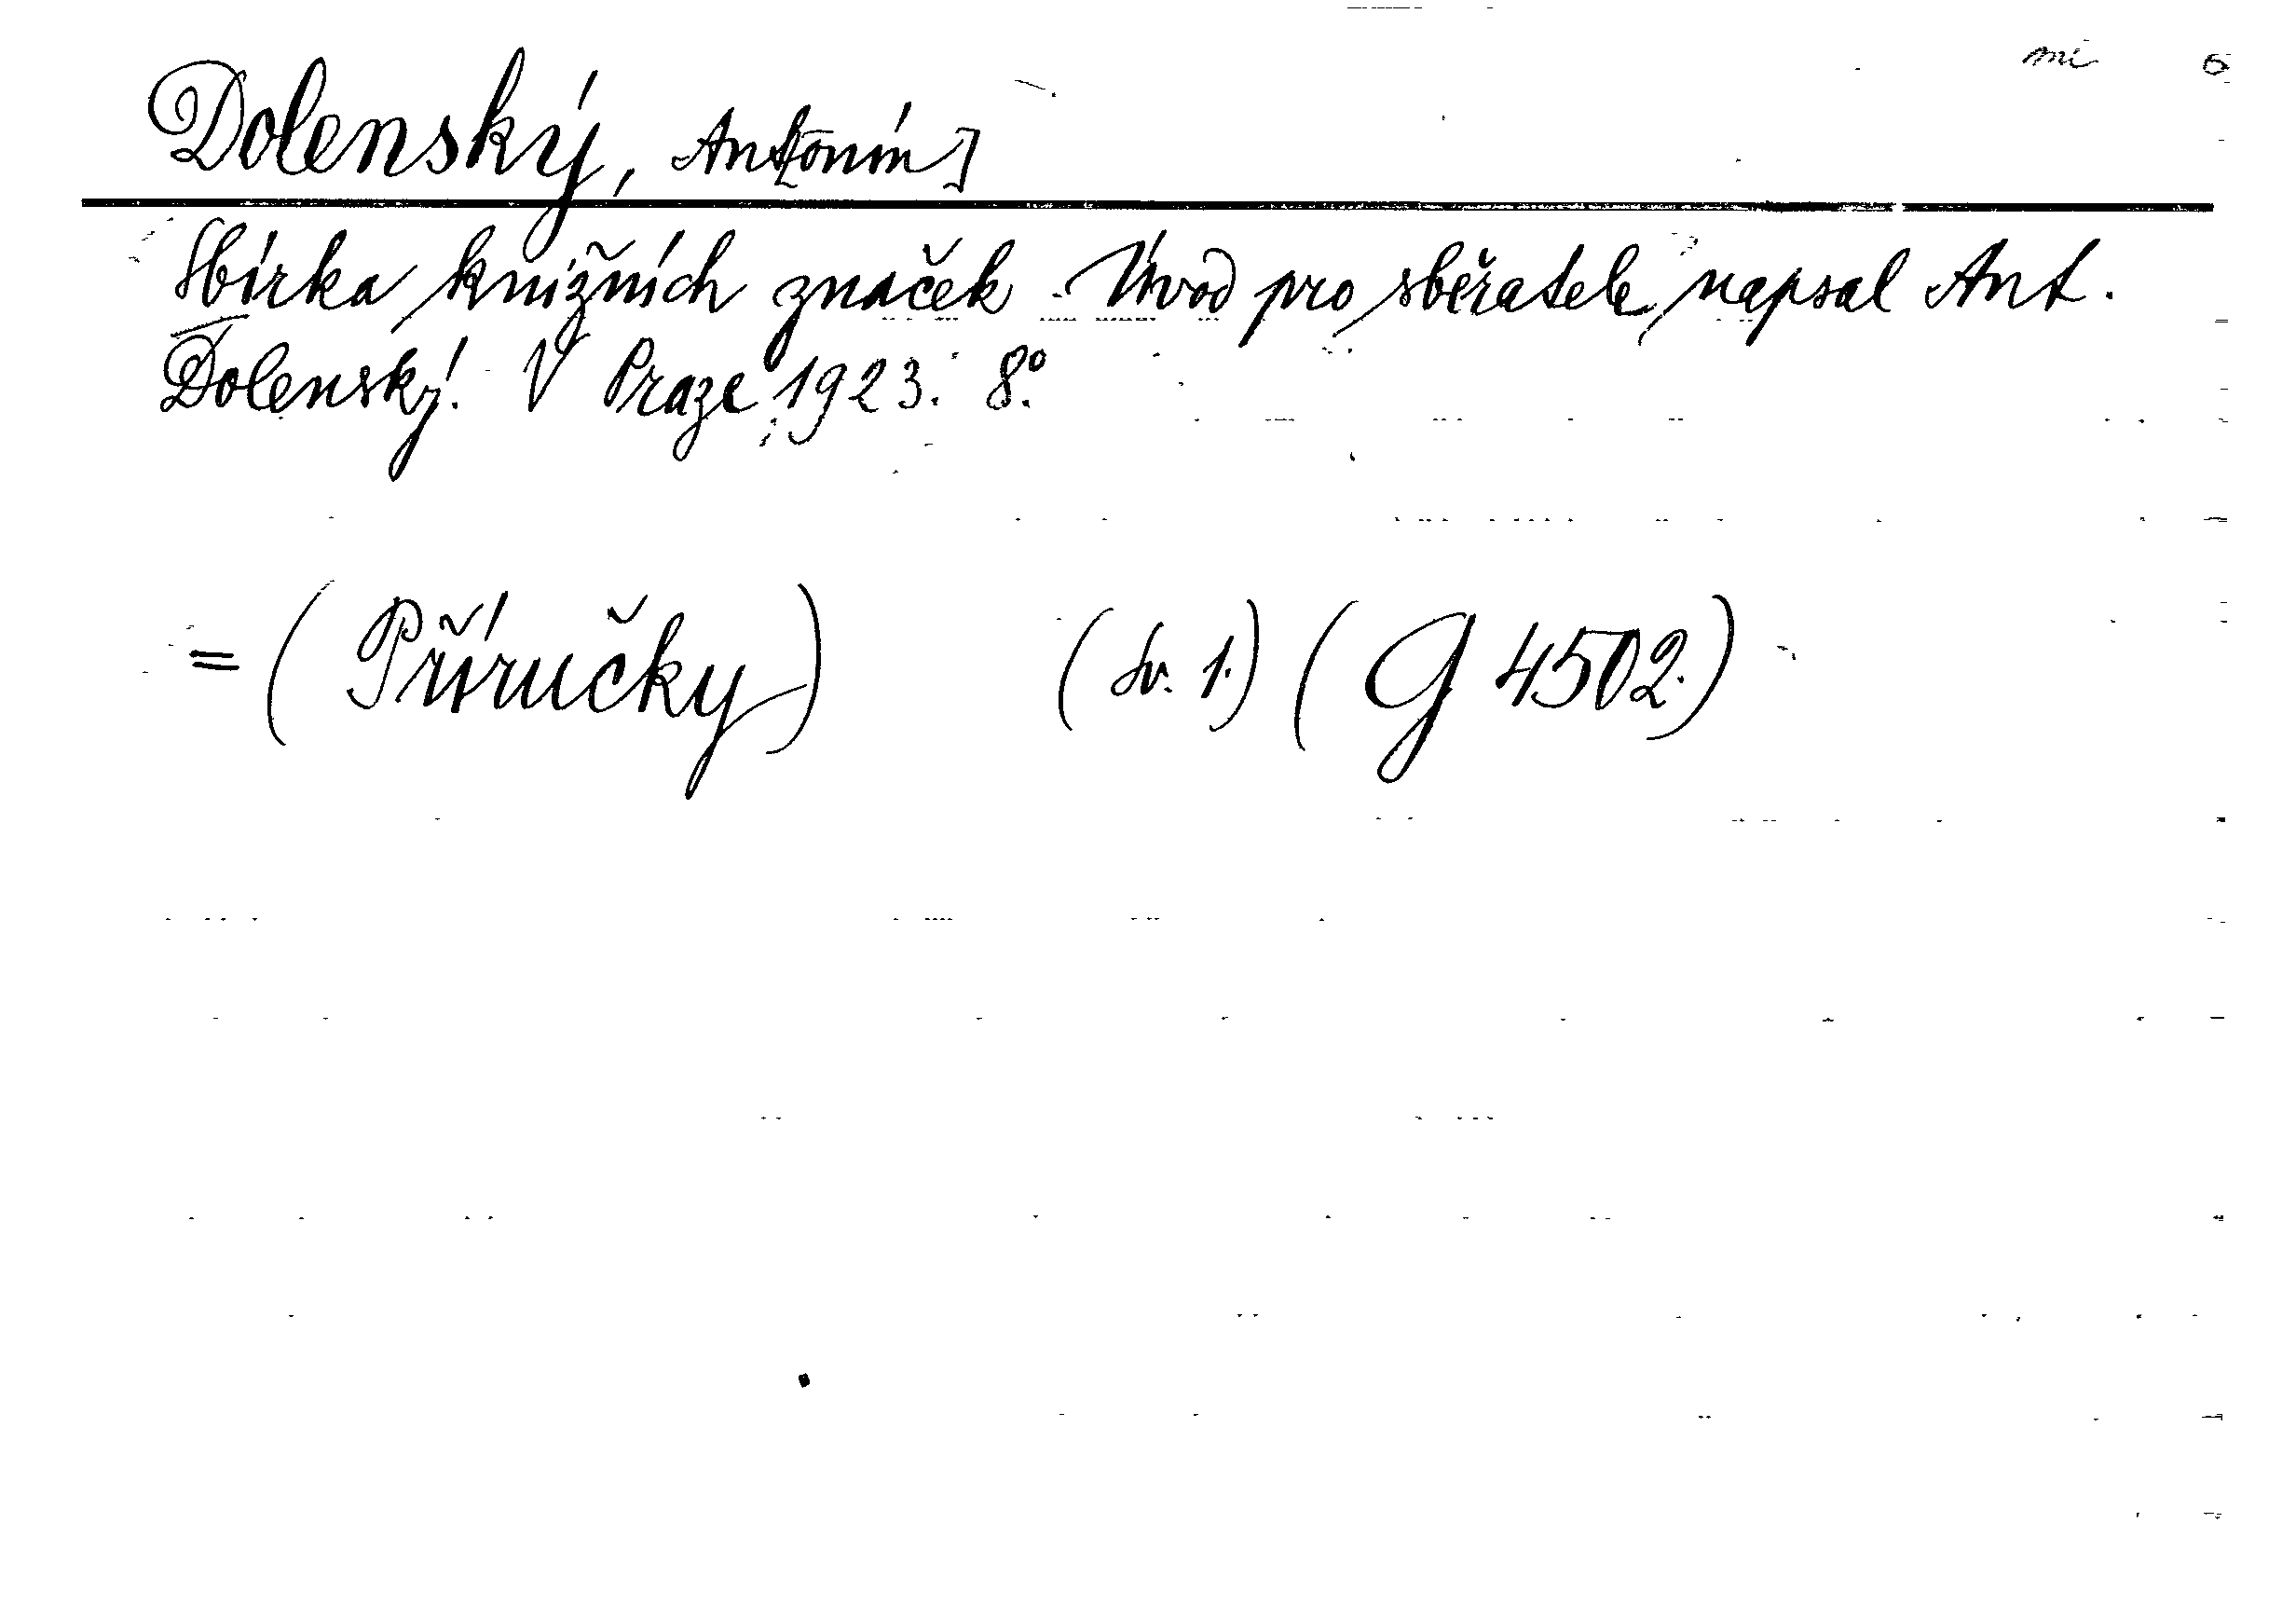 mi 6
Dolenský, Ant[onín]
Sbírka knižních značek. Úvod pro sběratele, napsal Ant.
Dolenský. V Praze 1923. 8º.
= (Příručky) (sv. 1.) (G 4502.)